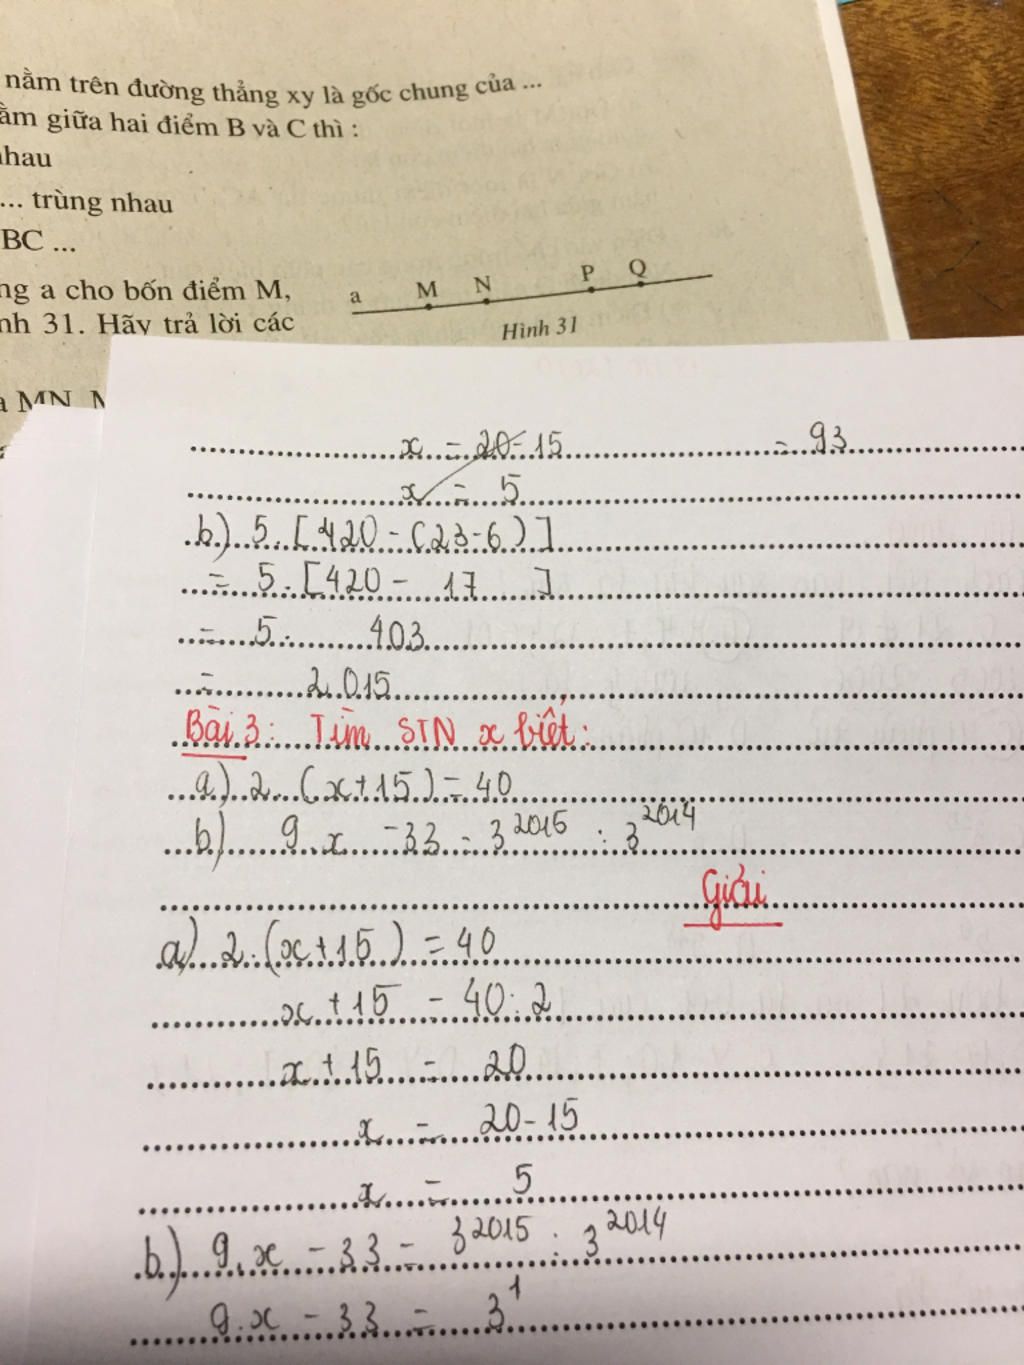 nằm trên đường thẳng xy là gốc chung của ...
ằm giữa hai điểm B và C thì :
nhau
... trùng nhau
BC ...
ng a cho bốn điểm M,
nh 31. Hãy trả lời các
a M N P Q
Hình 31
MN
x = 20-15 = 93
x = 5
b) 5.[420-(23-6)]
= 5.[420- 17 ]
= 5. 403
= 2015
Bài 3: Tìm STN x biết:
a) 2.(x+15)=40
b) 9.x -33 = 3²⁰¹⁵ : 3²⁰¹⁴
Giải
a) 2.(x+15) = 40
x+15 = 40:2
x+15 = 20
x = 20-15
x = 5
b) 9.x - 33 = 3²⁰¹⁵ : 3²⁰¹⁴
9.x - 33 = 3¹